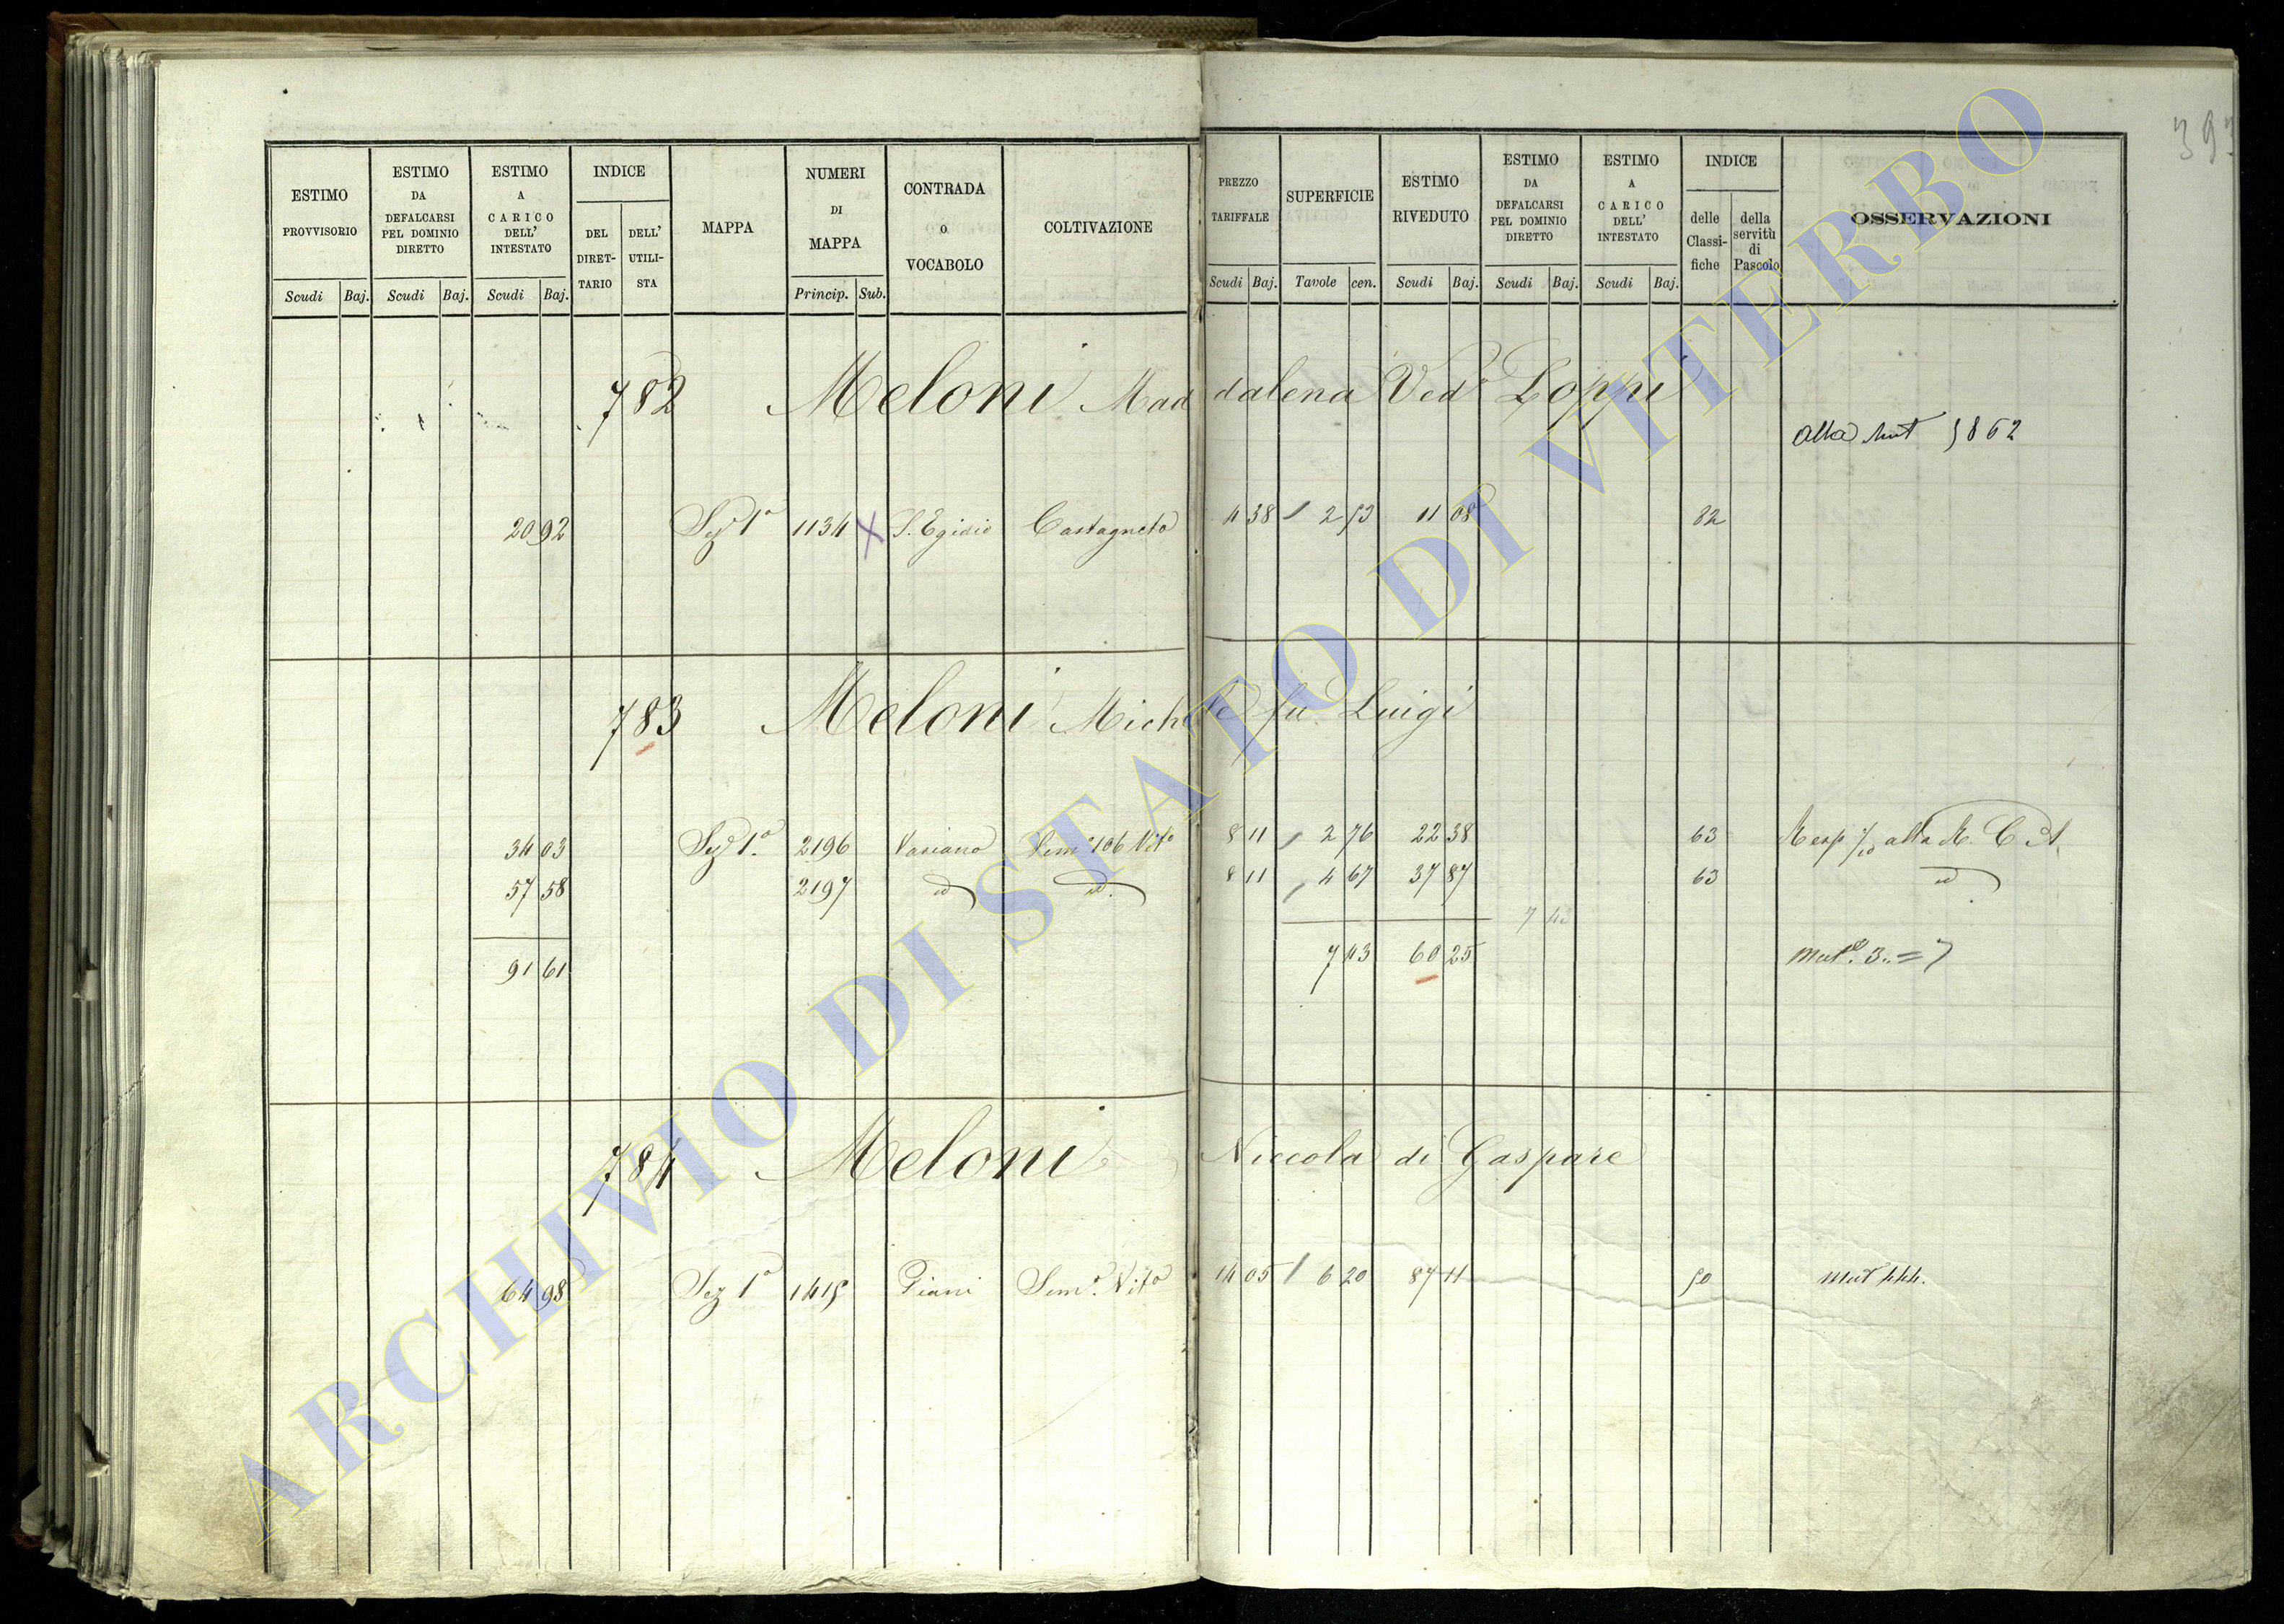 393
ESTIMO PROVVISORIO Scudi Baj.
ESTIMO DA DEFALCARSI PEL DOMINIO DIRETTO Scudi Baj.
ESTIMO A CARICO DELL' INTESTATO Scudi Baj.
INDICE DEL DIRET-TARIO DELL' UTILI-STA
MAPPA
NUMERI DI MAPPA Princip. Sub.
CONTRADA O VOCABOLO
COLTIVAZIONE
PREZZO TARIFFALE Scudi Baj.
SUPERFICIE Tavole cen.
ESTIMO RIVEDUTO Scudi Baj.
ESTIMO DA DEFALCARSI PEL DOMINIO DIRETTO Scudi Baj.
ESTIMO A CARICO DELL' INTESTATO Scudi Baj.
INDICE delle Classi-fiche della servitù di Pascolo
OSSERVAZIONI
782 Meloni Maddalena Ved.ª Loppi
alla Mut 1862
20 92 Sez 1ª 1134 X S. Egidio Castagneto 4 38 2 53 11 08 82
783 Meloni Michele fu Luigi
34 03 Sez 1ª 2196 Sem.º Vit.º 8 11 2 76 22 38 63 Resp alla R. C. A.
57 58 2197 id id. 8 11 4 67 37 87 63 id
7 42
91 61 7 43 60 25 Mut.e 3. = 7
784 Meloni Niccola di Gaspare
64 98 Sez 1ª 1415 Piani Sem.º Vit.º 14 05 6 20 87 11 50 Mut 444.
ARCHIVIO DI STATO DI VITERBO